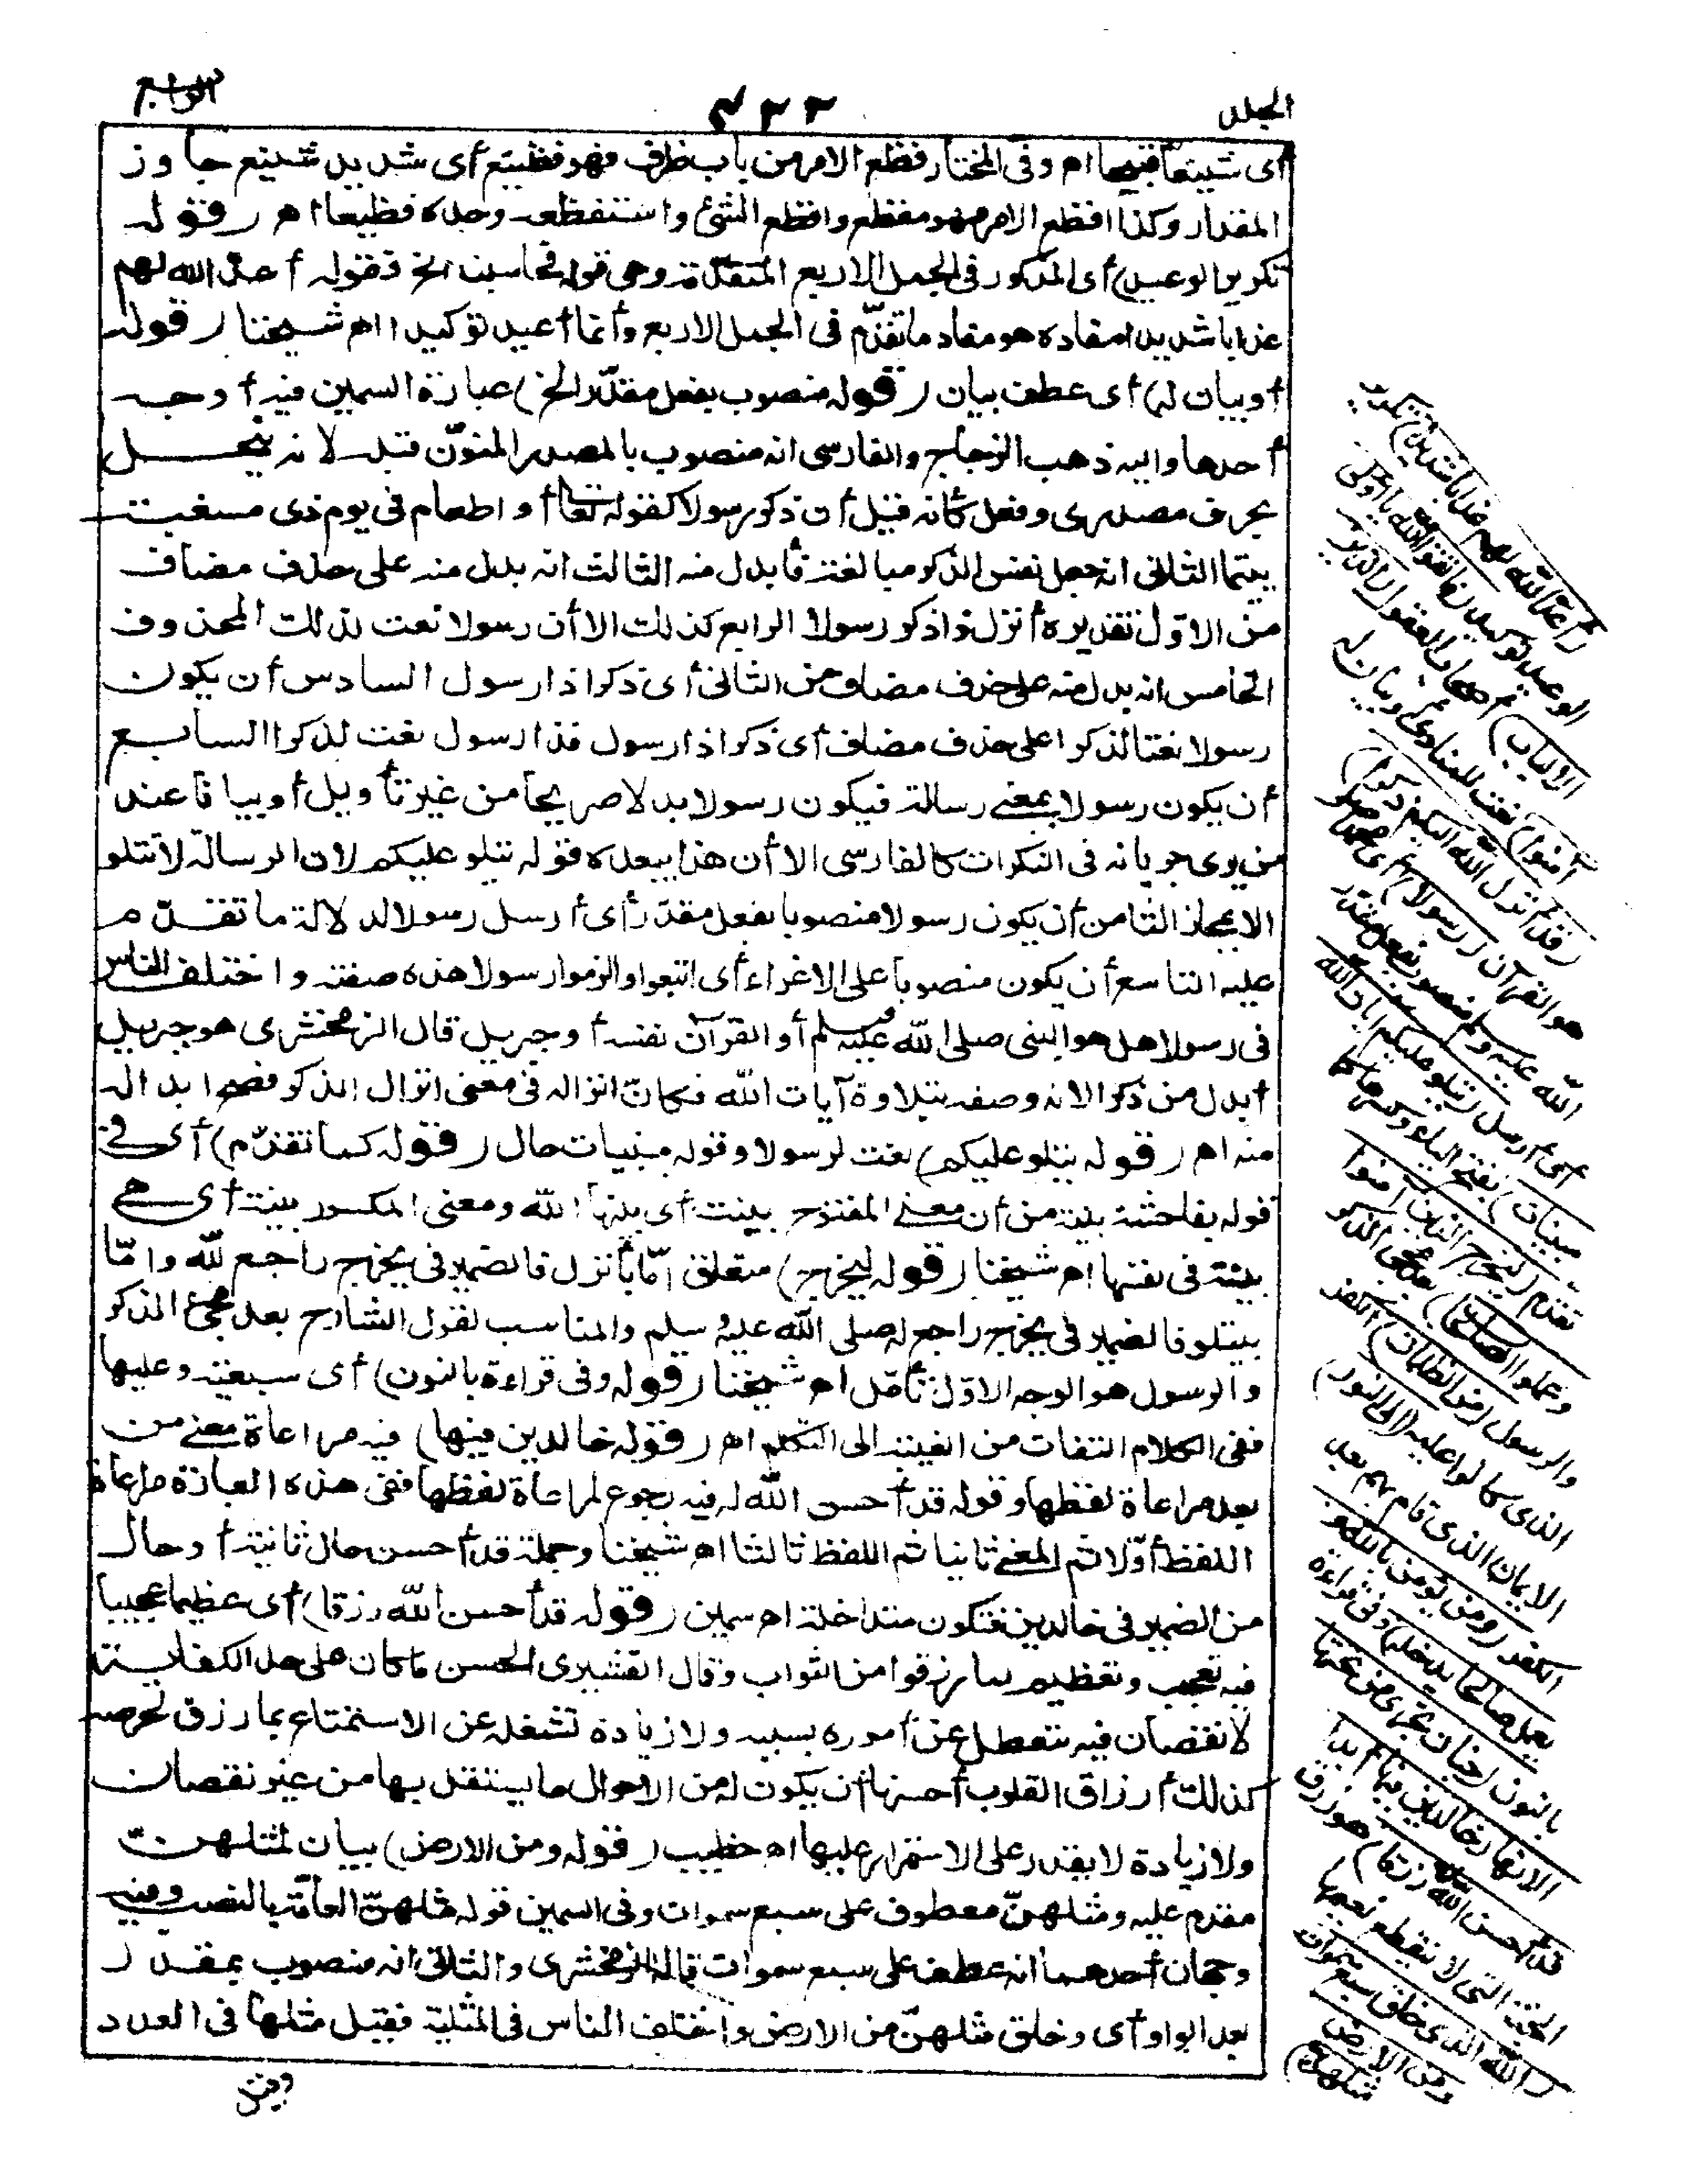 الجلد
٤٢٢
الرابع
أى شنيعا قبيحا اه وفى المختار فظع الامر من باب ظرف فهو فظيع أى شديد شنيع جاوز
المقدار وكذا افظع الامر فهو مفظع وافظع الشئ واستفظعه وجده فظيعا اه (قوله
تكرير الوعيد) أى المذكور فى الجمل الاربع المتقدمة وهى قوله فحاسبناها الخ فقوله أعد الله لهم
عذابا شديدا مفاده هو مفاد ما تقدّم فى الجمل الاربع وأنما أعيد توكيدا اه شيخنا (قوله
أو بيان له) أى عطف بيان (قوله منصوب بفعل مقدّر الخ) عبارة السمين فيه أوجه
أحدها واليه ذهب الزجاج والفارسى انه منصوب بالمصدر المنوّن قبله لانه ينحل
بحرف مصدرى وفعل كأنه قيل أن ذكر رسولا كقوله تعا أو اطعام فى يوم ذى مسغبة
يتيما الثانى انه جعل نفس الذكر مبالغة فأبدل منه الثالث انه بدل منه على حذف مضاف
من الاوّل تقديره أنزل ذا ذكر رسولا الرابع كذلك الا أن رسولا نعت لذلك المحذوف
الخامس انه بدل منه على حذف مضاف من الثانى أى ذكرا ذا رسول السادس أن يكون
رسولا نعتا لذكرا على حذف مضاف أى ذكرا ذا رسول فذا رسول نعت لذكرا السابع
أن يكون رسولا بمعنى رسالة فيكون رسولا بدلا صريحا من غير تأويل أو بيانا عند
من يرى جريانه فى النكرات كالفارسى الا أن هذا يبعده قوله يتلو عليكم لان الرسالة لا تتلو
الا بمجاز الثامن أن يكون رسولا منصوبا بفعل مقدّر أى أرسل رسولا لدلالة ما تقدّم
عليه التاسع أن يكون منصوبا على الاغراء أى اتبعوا والزموا رسولا هذه صفته واختلف الناس
فى رسولا هل هو النبى صلى الله عليه وسلم أو القرآن نفسه أو جبريل قال الزمخشرى هو جبريل
أبدل من ذكرا لانه وصف بتلاوة آيات الله فكان انزاله فى معنى انزال الذكر فصح ابداله
منه اه (قوله يتلو عليكم) نعت لرسولا وقوله مبينات حال (قوله كما تقدّم) أى فى
قوله بفاحشة مبينة من أن معنى المفتوح بينت أى بينها الله ومعنى المكسور بينت أى هى
بينة فى نفسها اه شيخنا (قوله ليخرج) متعلق امّا بأنزل فالضمير فى يخرج راجع لله وامّا
بيتلو فالضمير فى يخرج راجع له صلى الله عليه وسلم والمناسب لقول الشارح بعد مجئ الذكر
والرسول هو الوجه الاوّل تأمّل اه شيخنا (قوله وفى قراءة بالنون) أى سبعية وعليها
ففى الكلام التفات من الغيبة الى التكلم اه (قوله خالدين فيها) فيه مراعاة معنى من
بعد مراعاة لفظها وقوله قد أحسن الله له فيه رجوع لمراعاة لفظها ففى هذه العبارة مراعاة
اللفظ أوّلا ثم المعنى ثانيا ثم اللفظ ثالثا اه شيخنا وجملة قد أحسن حال ثانية أو حال
من الضمير فى خالدين فتكون متداخلة اه سمين (قوله قد أحسن الله رزقا) أى عظيما عجيبا
فيه تعجب وتعظيم بما رزقوا من الثواب وقال القشيرى الحسن ما كان على حد الكفاية
لا نقصان فيه تتعطل عن أموره بسببه ولا زيادة تشغله عن الاستمتاع بما رزق لحرصه
كذلك أرزاق القلوب أحسنها أن يكون له من الاحوال ما يستقل بها من غير نقصان
ولا زيادة لا يقدر على الاستمرار عليها اه خطيب (قوله ومن الارض) بيان لمثلهن
مقدم عليه ومثلهنّ معطوف على سبع سموات وفى السمين قوله مثلهنّ العامّة بالنصب وفيه
وجهان أحدهما انه عطف على سبع سموات قاله الزمخشرى والثانى انه منصوب بمقدّر
بعد الواو أى وخلق مثلهنّ من الارض واختلف الناس فى المثلية فقيل مثلها فى العدد
(أعدّ الله لهم عذابا شديدا) تكرير
الوعيد توكيد (فاتقوا الله يا أولى
الالباب) أصحاب العقول (الذين
آمنوا) نعت للمنادى أو بيان له
(قد أنزل الله اليكم ذكرا)
هو القرآن (رسولا) أى محمدا صلى
الله عليه وسلم منصوب بفعل مقدر
أى أرسل (يتلو عليكم آيات الله
مبينات) بفتح الياء وكسرها كما
تقدم (ليخرج الذين آمنوا
وعملوا الصالحات) بعد مجئ الذكر
والرسول (من الظلمات) الكفر
الذى كانوا عليه (الى النور)
الايمان الذى قام بهم بعد
الكفر (ومن يؤمن بالله و
يعمل صالحا يدخله) وفى قراءة
بالنون (جنات تجرى من تحتها
الانهار خالدين فيها أبدا
قد أحسن الله له رزقا) هو رزق
الجنة التى لا ينقطع نعيمها
(الله الذى خلق سبع سموات
ومن الارض
مثلهن)